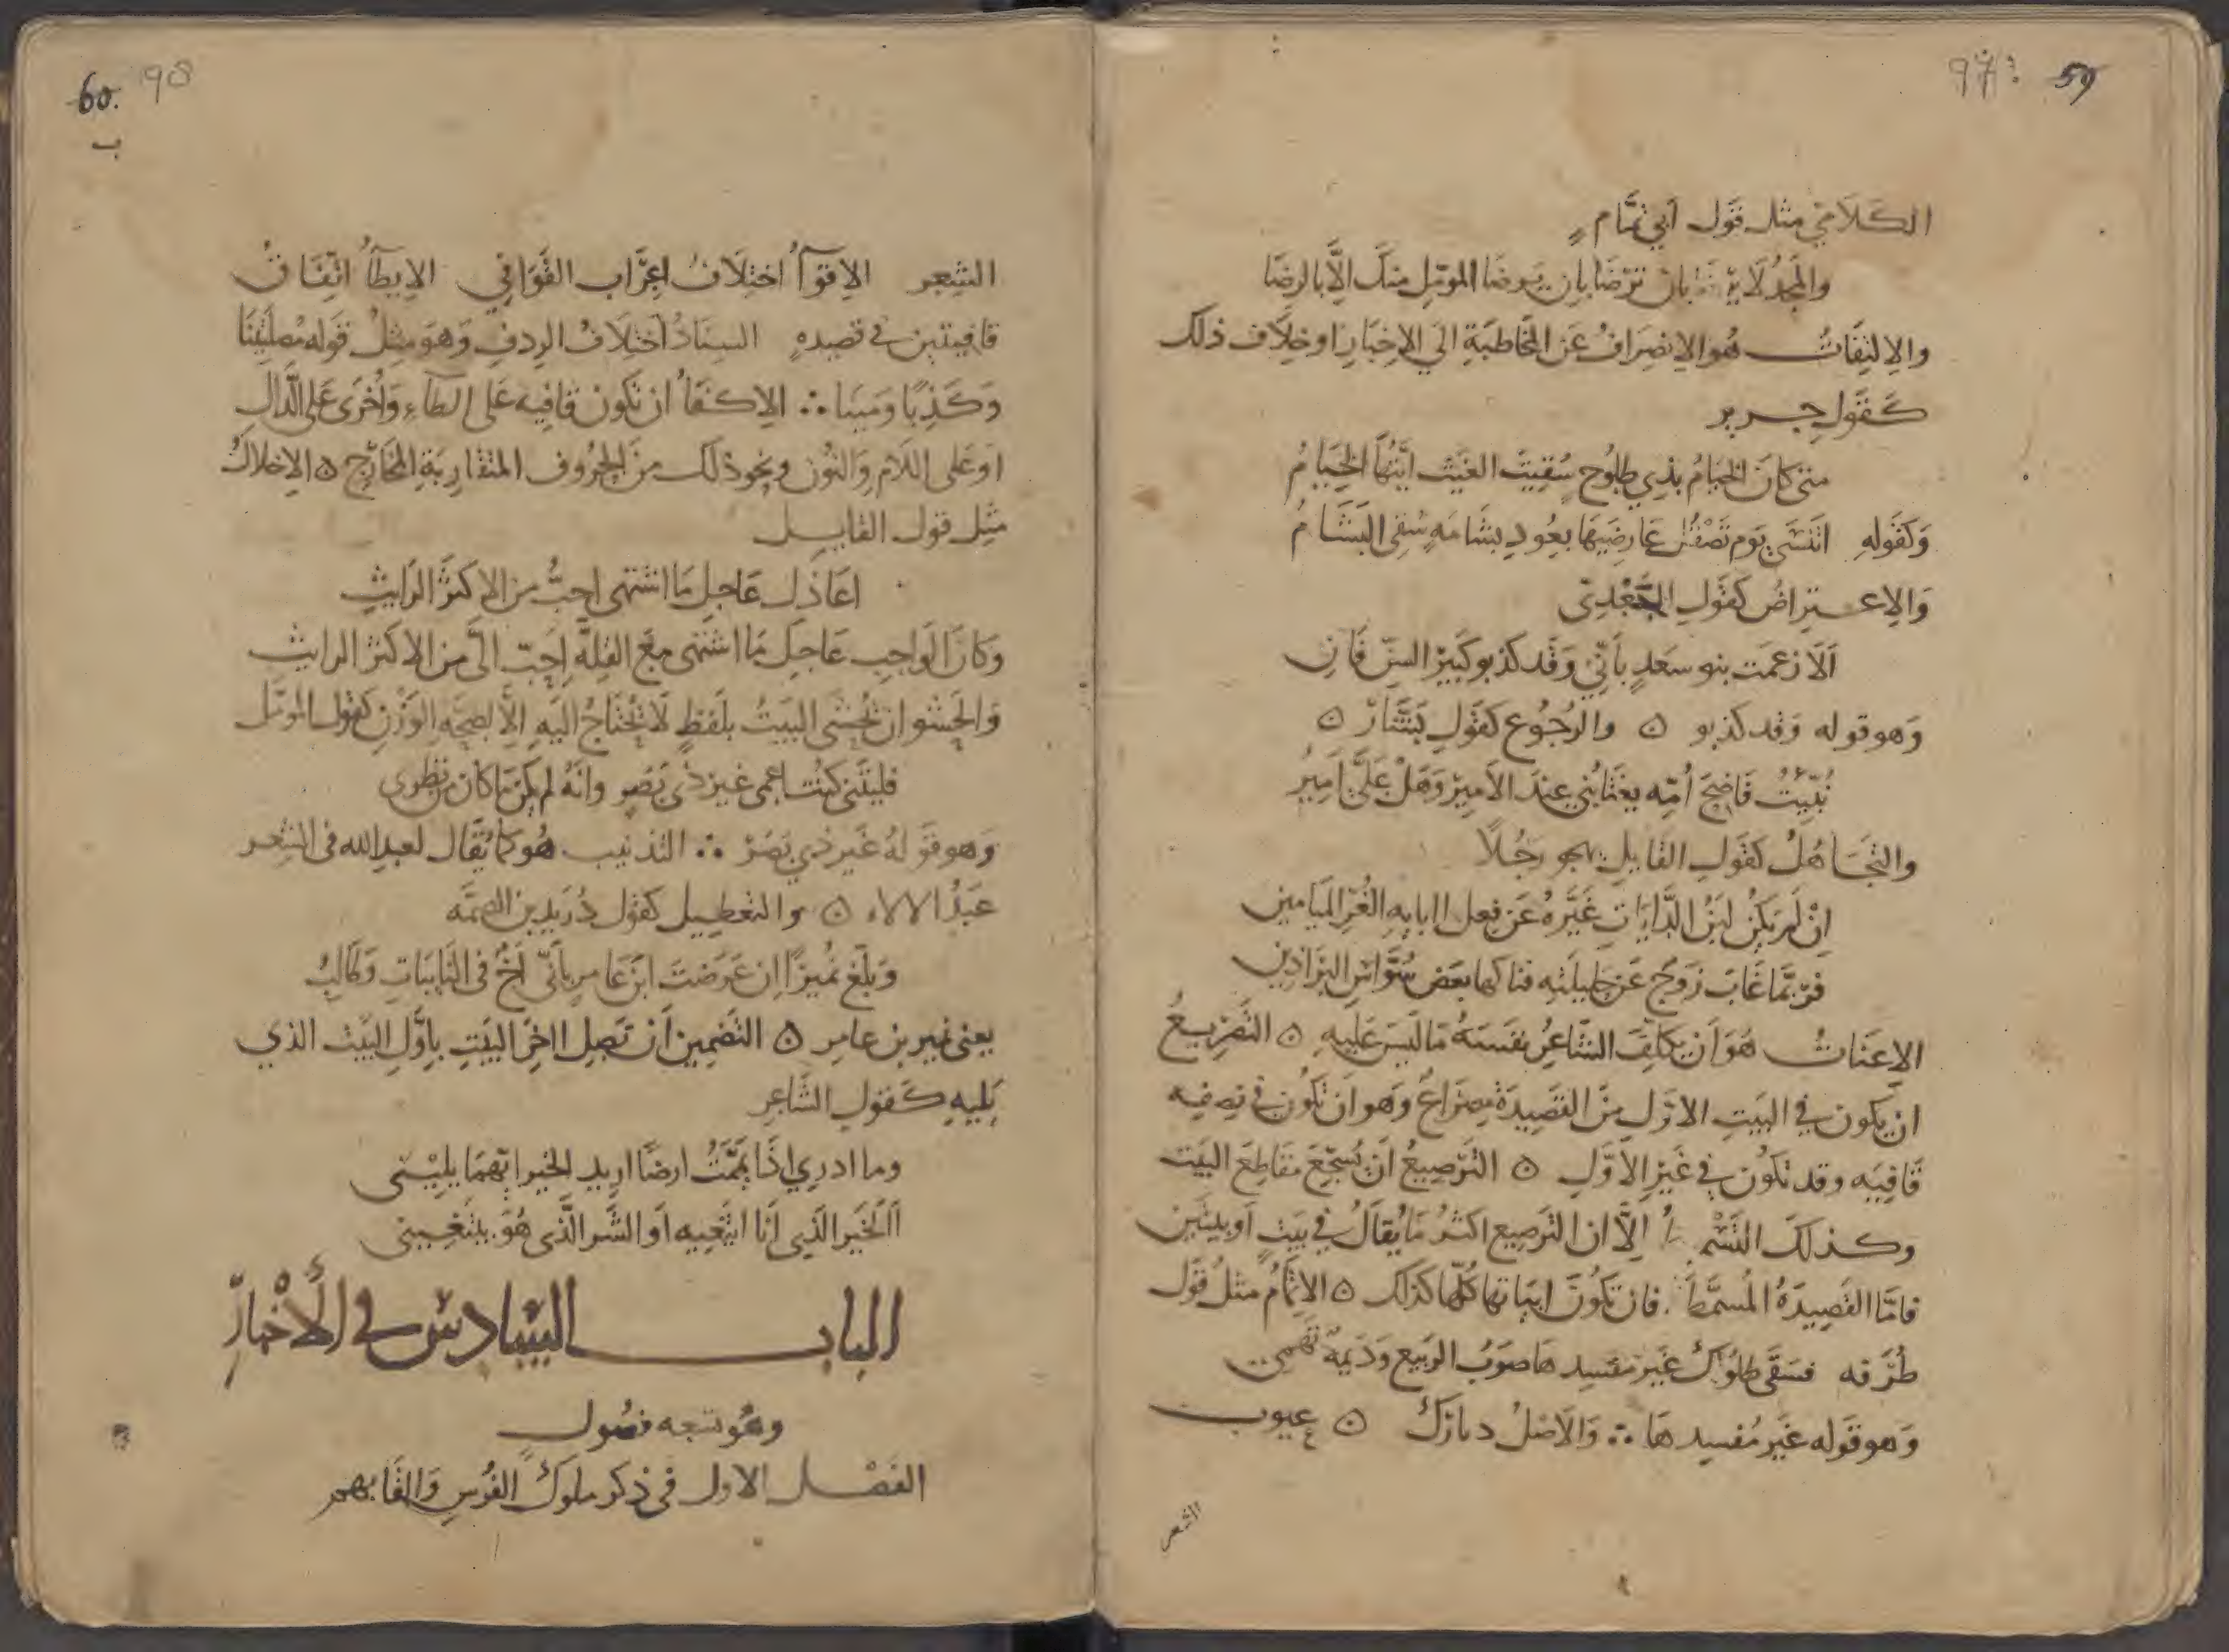 97 59
الكلامي مثل قول أبي تمّام
والمجدُ لا بان ترضا بان يرضا المومّل منك الّا بالرضَا
والالتِفَاتُ هُو الانصِرافُ عَن المخَاطبَةِ الي الاخبَارِ او خِلَاف ذلك
كَقَولِ جرير
متى كانَ الخيَامُ بذِي طلوُحٍ سُقِيتَ الغَيثَ ايّتُهَا الخِيَامُ
وَكقَولهِ اتنسَى يَوم تَصْقُل عَارضَيهَا بعُودِ بشَامَهٍ سُقِى البَشَامُ
وَالاِعتراضُ كقَولِ الجَعْدِىّ
اَلا زعمَت بنو سَعدٍ بأنّي وَقَد كذبو كَبيرُ السِنّ فَانِ
وَهو قوله وَقد كذبو ۝ والرجُوع كقَولِ بَشّار ۝
نُبّيتُ فَاضحَ اُمّه يغتَابُني عِندَ الاَميرْ وَهَلْ عَلىَّ اَميرُ
والتجَاهُلُ كقَول القايلِ يهجو رجُلاً
اِنْ لَم يَكنْ لبَنُ الدَّايَاتِ غَيَّرهُ عَن فعلِ اابايهِ الغُرّ الميَامينِ
فرُبّمَا غَابَ زَوجٌ عَن حَليلَتهِ فناكها بعَض سُوَّاسِ البَرَاذينِ
الاِعنَاتُ هُوَ اَن يكلّفَ الشّاعِرُ نفسَهُ مَا ليسَ عَلَيهِ ۝ التَصريعُ
ان يكون في البَيتِ الاوّلِ منَ القَصِيدَةِ مِصرَاعٌ وهو ان تكُون في نِصفِه
قَافِيَه وقد تكوُن في غَيرِ الاَوّلِ ۝ الترصِيعُ اَنْ يُسَجّعَ مقاطِعَ البَيت
وكذلكَ التَسْم اِلّا ان الترصِيع اكثرُ مَا يُقالُ في بَيتٍ اَو بيتَين
فامّا القَصِيدَةُ المُسمّطَة فان تكُونَ ابيَاتها كُلّها كذلك ۝ الاِتمَامُ مثلُ قَول
طُرَفه فسَقَى طلوُلكَ غَيرَ مفسِدها صَوبُ الرَبيع وَدَيمَةٌ تهمى
وَهو قَوله غَير مُفسِدهَا ∴ وَالاَصْلُ ديَارَكَ ۝ عيوب
الشعر
60 98
ب
الشِعِر الاِقوآُ اختِلَافُ اِعرَاب القَوافي الاِيطآُ اتّفَاقُ
قافيتين في قصيدهِ السِنَادُ اختِلَافُ الردِفِ وَهوَ مِثلُ قَوله مُصلِتينَا
وَكَذِبًا وَمَينَا ∴ الاِكفَأُ ان تَكون قافِيه عَلى الطاءِ وَاُخرَى عَلى الدَّالِ
اَو عَلى اللَام وَالنوُن ونحو ذلك منَ الحُروُف المتقارِبَةِ المَخَارِج ۝ الاِخلالُ
مثِل قول القايل
اعَاذلَ عَاجِل مَا اشتهى احبُّ من الاكثرِ الرَايثِ
وَكانَ الوَاجِب عَاجِلَ مَا اشتهى مَعَ القِلّة اَحَبّ الىَّ مِن الاكثر الرايث
وَالحَشو ان يُحشَى البَيتُ بلَفظٍ لَا يُحتَاجُ اليَهِ اِلّا لصِحّةِ الوَزنِ كقول المومّل
فليتَنى كنُت اعمى غيرَ ذى بَصَرٍ وانّهُ لم يكن مَا كان من نظرى
وَهو قَولهُ غَير ذي بَصَرْ ∴ التذنيب هُو كما يُقَال لعبد الله في الشِعر
عبَدُ الالاه ۝ والتعطيل كقول دُرَيد بن الصمّه
وَبلّغ نُميرًا اِن عَرَضتَ ابنَ عَامرٍ بأنّي اَخٌ في النايبَاتِ وَطَالِبُ
يعنى نمير بن عامر ۝ التضمين اَنْ تَصِل ااخرَ البَيتِ باَوّلِ البَيت الذي
يَليهِ كَقولِ الشاعِر
وما ادري اذَا يَمَّمْتُ ارضًا اريد الخير ايّهمَا يليْنى
أالخيَر الذي اَنَا ابتَغِيه اَو الشَّر الذّى هُوَ يبتغيني
الباب السّادسُ في الأَخبَارِ
وهُو تسعه فصُول
الفَصْل الاول في ذكر ملوك الفُرسِ وَالقَابهم